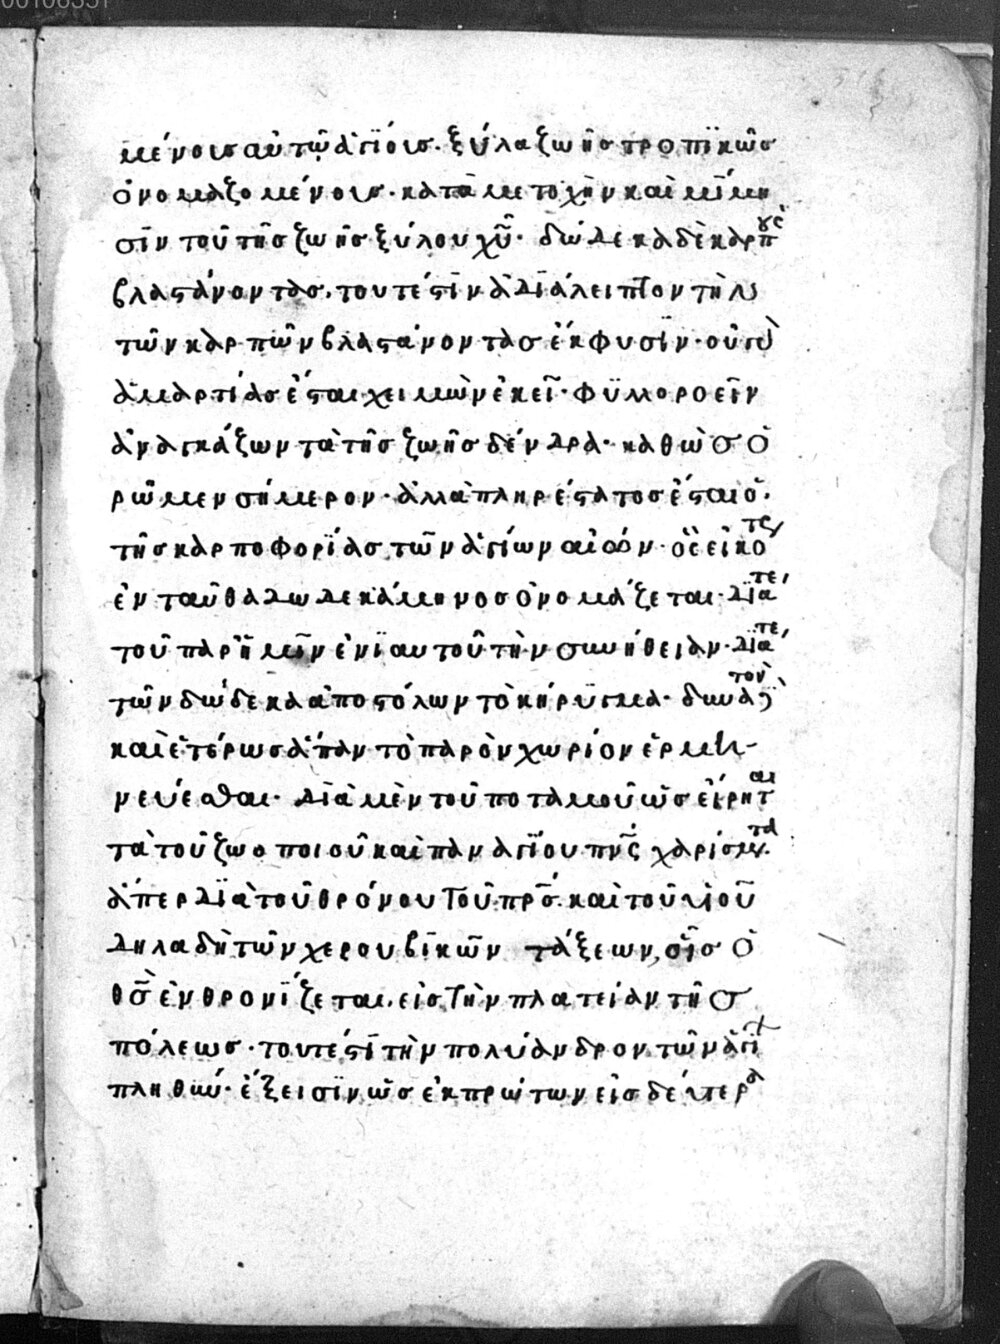 μένοις αὐτῷ ἁγίοις· ξύλα ζωῆς τροπϊκῶς
ὀνομαζομένοις· κατὰ μετοχὴν καὶ μίμη
σϊν τοῦ τῆς ζωῆς ξύλου χ̅υ̅· δώδεκα δὲ καρπ
βλαστάνοντας. τουτέστιν ἀδιάλειπτον τὴν
τῶν καρπῶν βλαστάνοντας ἔκφυσϊν· οὔπω
ἁμαρτίας ἔσται χειμὼν ἐκεῖ· φϋλλοροεῖν
ἀναγκάζων τὰ τῆς ζωῆς δένδρα· καθὼς ὁ
ρῶμεν σήμερον· ἀλλὰ πληρέστατος ἔσται ὁ
τῆς καρποφορίας τῶν ἁγίων αἰών·
ἐνταῦθα δωδεκάμηνος ὀνομάζεται· διά τε
τοῦ παρ' ἡμῖν ἐνϊαυτοῦ τὴν συνήθειαν· διά τε
τῶν δώδεκα ἀποστόλων τὸ κήρϋγμα· δυνατὸν
καὶ ἑτέρως ἅπαν τὸ παρὸν χωρίον ἑρμη
νεύεσθαι· διὰ μὲν τοῦ ποταμοῦ ὡς εἴρηται
τὰ τοῦ ζωοποιοῦ καὶ παναγίου π̅ν̅ς̅ χαρίσματα
ἅπερ διὰ τοῦ θρόνου τοῦ π̅ρ̅ς̅ καὶ τοῦ υἱοῦ
δηλαδὴ τῶν χερουβϊκῶν τάξεων, οἷς ὁ
θ̅ς̅ ἐνθρονίζεται. εἰς τὴν πλατεῖαν τῆς
πόλεως· τουτέστι τὴν πολύανδρον τῶν ἁγί
πληθύν· ἔξεισϊν ὡς ἐκ πρώτων εἰς δεύτερα